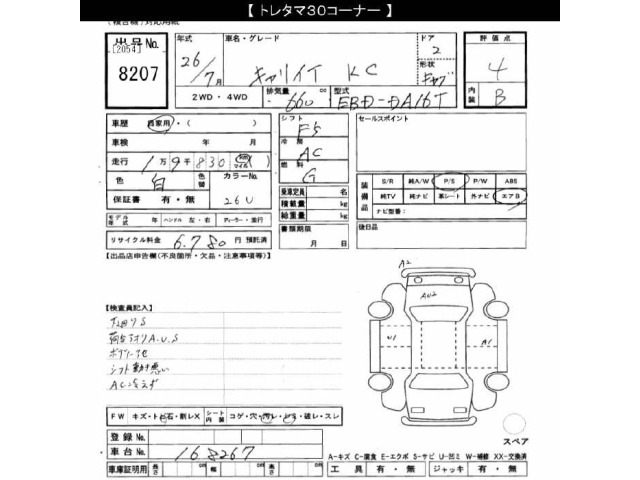 【 トレタマ30コーナー 】
(複合機)対応用紙
出品No. 年式 車名・グレード ドア 評価点
[2054] 26/7月 キャリイT KC 2 4
8207 形状 キャブ
2WD・4WD 排気量 660 cc 型式 EBD-DA16T 内装 B
車歴 自家用・( ) シフト F5 セールスポイント
車検 年 月 冷房 AC
走行 1万9千830 km マイル ( ) 燃料 G
色 白 色替 カラーNo. 26U
乗車定員 名 装備品 S/R 純A/W P/S P/W ABS
保証書 有・無 積載量 kg 純TV 純ナビ 革シート 外ナビ エアB
総重量 kg ナビ型番:
モデル年式 年 ハンドル 左・右 ディーラー・並行 書類期限 後日品
リサイクル料金 6,780 円 預託済 月 日
【出品店申告欄(不良箇所・欠品・注意事項等)】
【検査員記入】
下回りS
荷台下オリA.U.S
シフト動き悪い
A2
AU2
U1
A1
FW キズ・トビ石・割レX シート内装 コゲ・穴・汚レ・シミ・破レ・スレ
登録No.
車台No. 168267
スペア
A-キズ C-腐食 E-エクボ S-サビ U-凹ミ W-補修 XX-交換済
車庫証明用 長さ cm 幅 cm 高さ cm 工具 有・無 ジャッキ 有・無